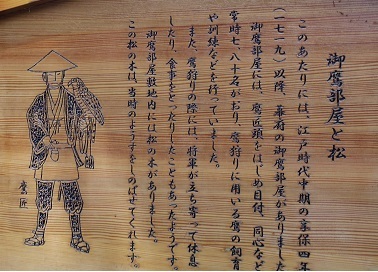 御鷹部屋と松
このあたりには、江戸時代中期の享保四年
(一七一九)以降、幕府の御鷹部屋がありました
御鷹部屋には、鷹匠頭をはじめ目付、同心など
常時七、八十名がおり、鷹狩りに用いる鷹の飼育
や訓練などを行っていました。
また、鷹狩りの際には、将軍が立ち寄って休息
したり、食事をとったりしたこともあったようです。
御鷹部屋敷地内には松の木がありました。
この松の木は、当時のようすをしのばせてくれます。
鷹匠